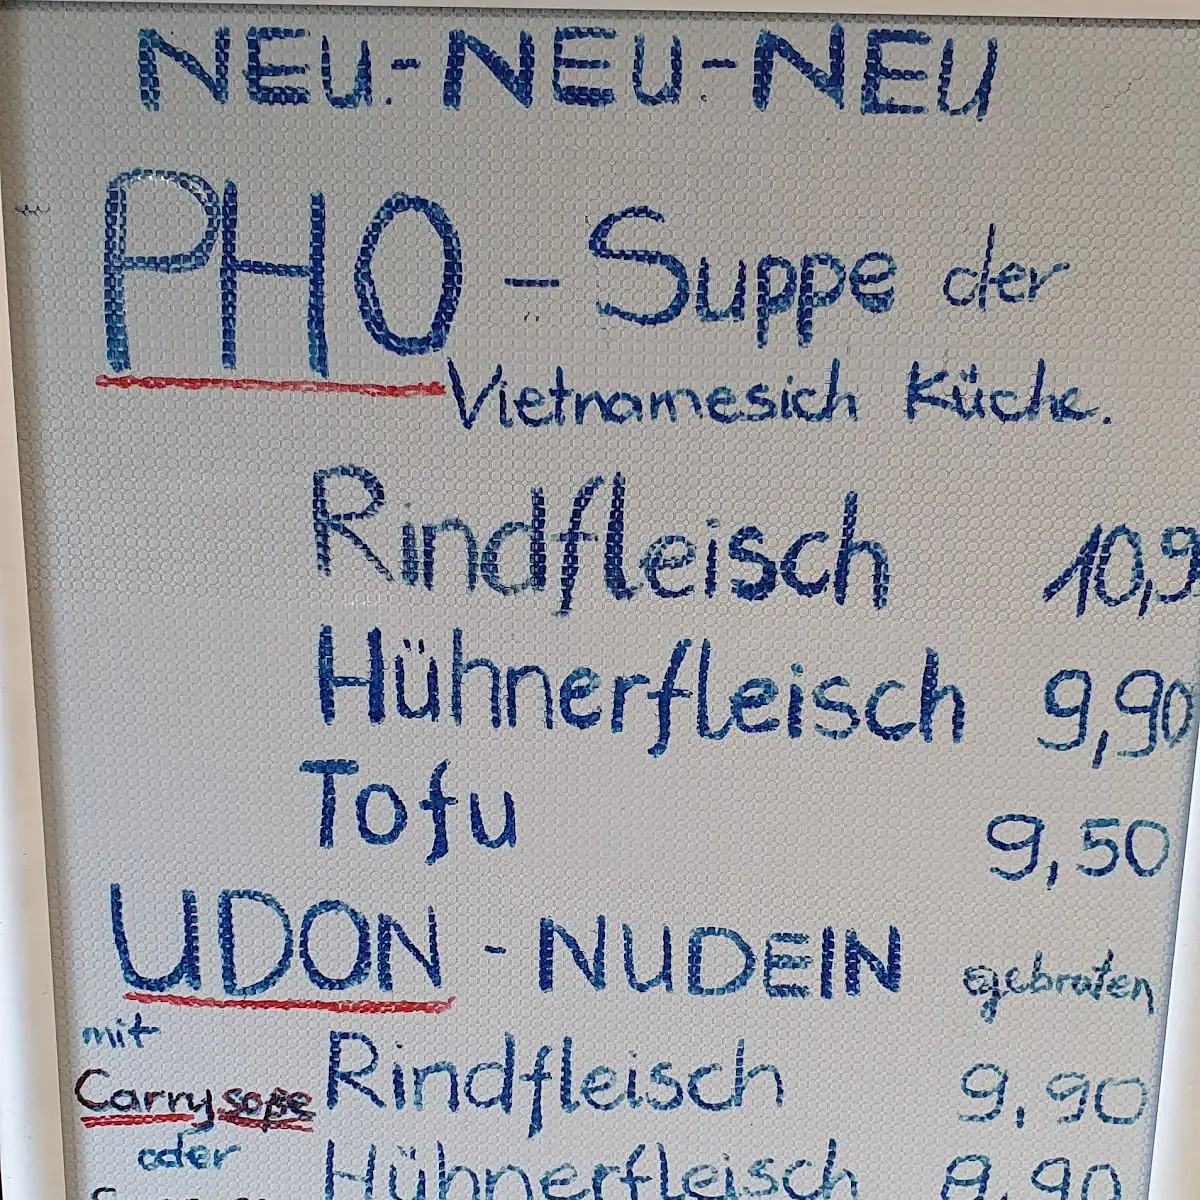 NEU-NEU-NEU
PHO - Suppe der
Vietnamesich Küche.
Rindfleisch 10,9
Hühnerfleisch 9,90
Tofu 9,50
UDON - NUDEIN gebraten
mit
Carrysoße Rindfleisch 9,90
oder Hühnerfleisch 9,90